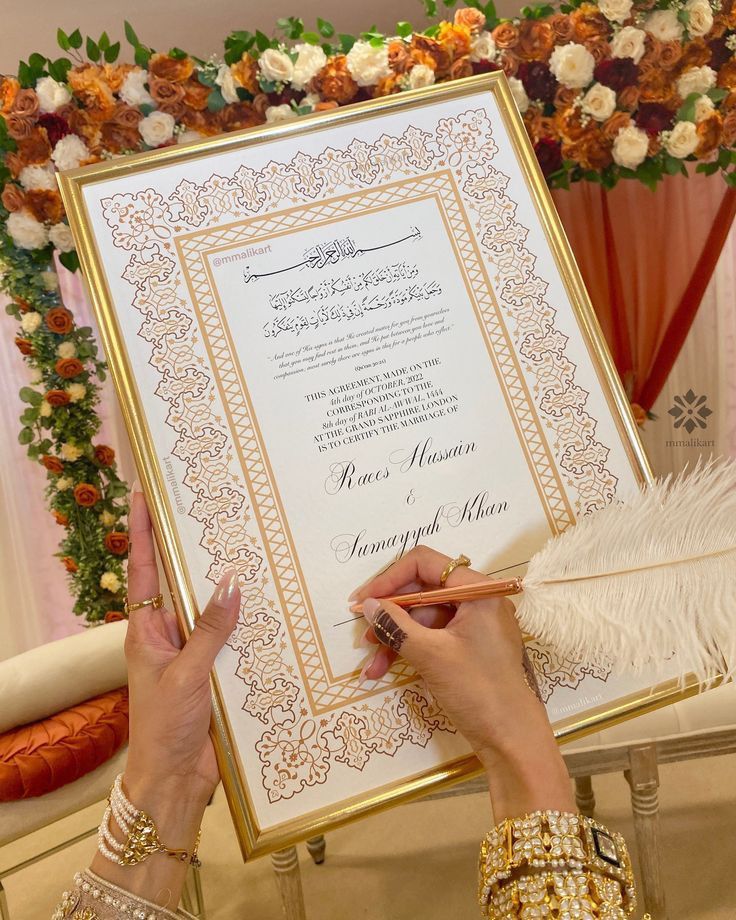 mmalikart
@mmalikart
بسم الله الرحمن الرحيم
وَمِنْ آيَاتِهِ أَنْ خَلَقَ لَكُم مِّنْ أَنفُسِكُمْ أَزْوَاجًا لِّتَسْكُنُوا إِلَيْهَا
وَجَعَلَ بَيْنَكُم مَّوَدَّةً وَرَحْمَةً إِنَّ فِي ذَٰلِكَ لَآيَاتٍ لِّقَوْمٍ يَتَفَكَّرُونَ
"And one of His signs is that He created mates for you from yourselves
that you may find rest in them, and He put between you love and
compassion; most surely there are signs in this for a people who reflect."
(Qur'an 30:21)
THIS AGREEMENT, MADE ON THE
4th day of OCTOBER, 2022
CORRESPONDING TO THE
8th day of RABI AL-AWWAL, 1444
AT THE GRAND SAPPHIRE LONDON
IS TO CERTIFY THE MARRIAGE OF
Raees Hussain
&
Sumayyah Khan
@mmalikart
mmalikart
@mmalikart